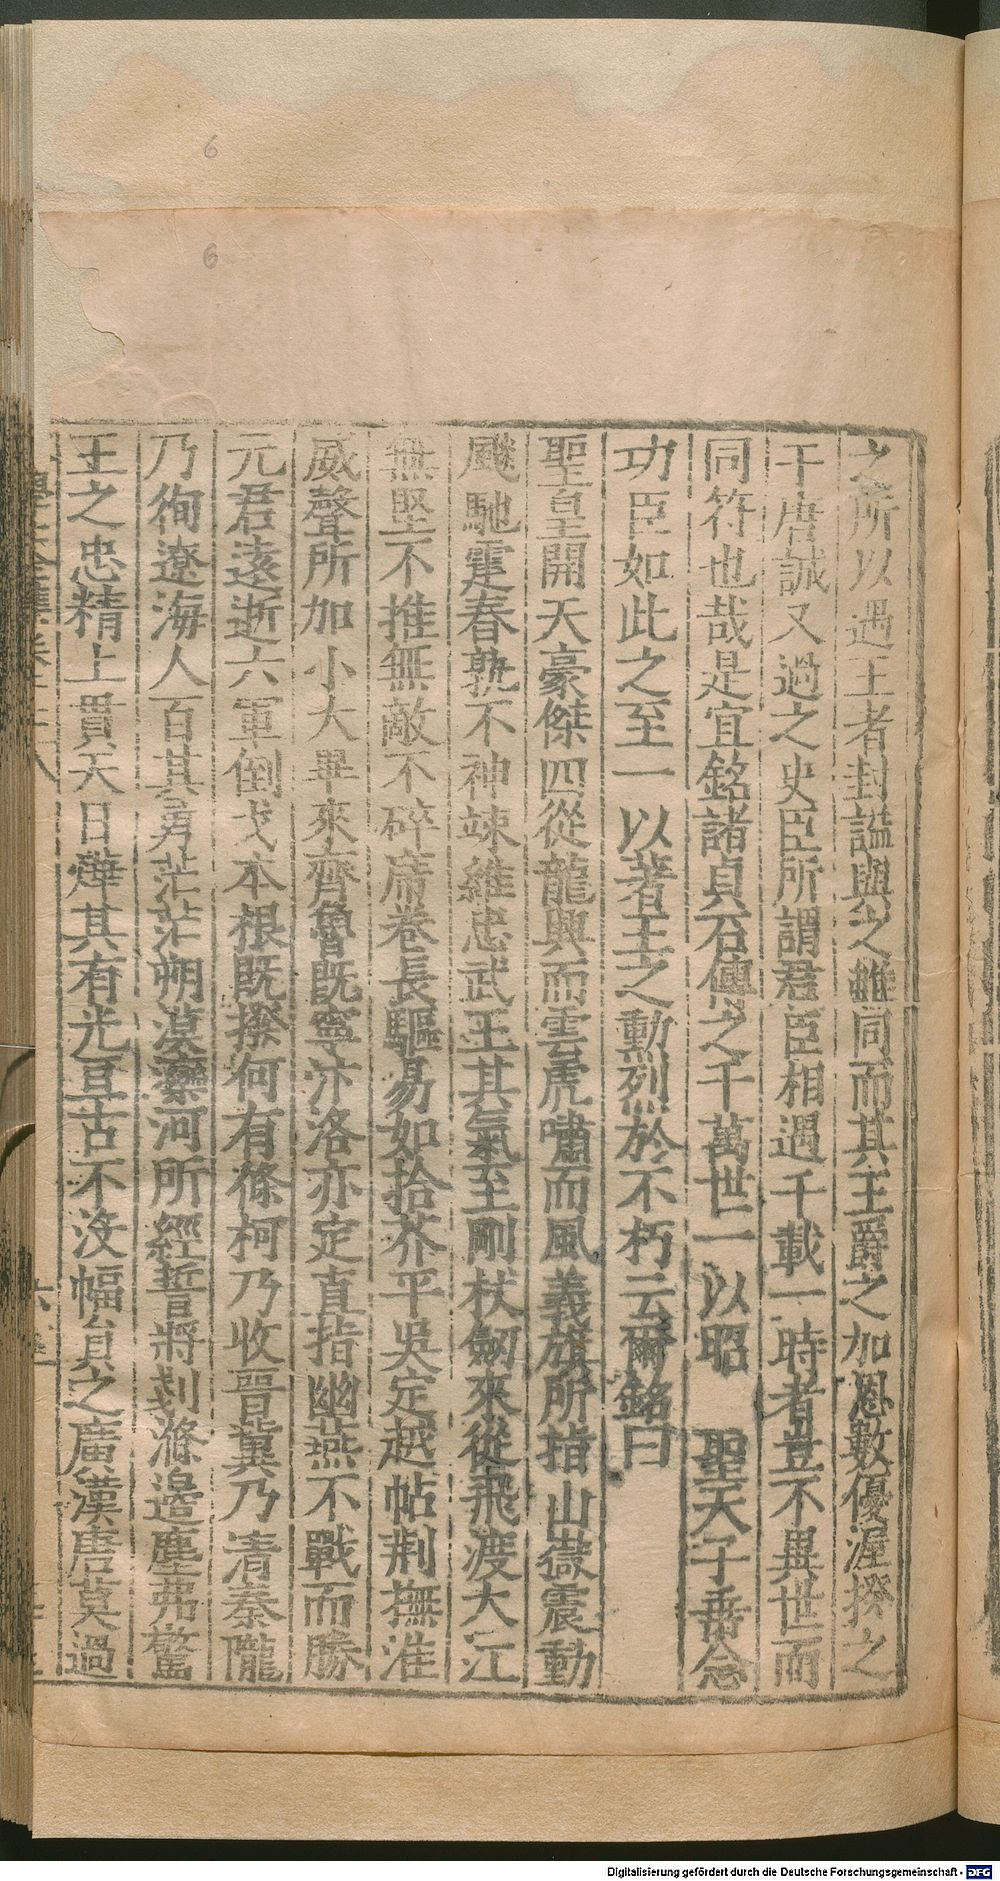 之所以遇王者封謚與之雖同而其王爵之加恩數優渥揆之
于唐誠又過之史臣所謂君臣相遇千載一時者豈不異世而
同符也哉是宜銘諸貞石傳之千萬世一以昭　聖天子垂念
功臣如此之至一以著王之勳烈於不朽云爾銘曰
聖皇開天豪傑四從龍興而雲虎嘯而風義旗所指山嶽震動
飈馳霆春孰不神竦維忠武王其氣至剛杖劒來從飛渡大江
無堅不推無敵不碎席卷長驅易如拾芥平吳定越帖荆撫淮
威聲所加小大畢來齊魯既寧汴洛亦定直指幽燕不戰而勝
元君遠逝六軍倒戈本根既撥何有條柯乃收晉冀乃清秦隴
乃徇遼海人百其勇茫茫朔漠灤河所經誓將剗滌邊塵弗驚
王之忠精上貫天日燁其有光亘古不没幅員之廣漢唐莫過
6
6
Digitalisierung gefördert durch die Deutsche Forschungsgemeinschaft - DFG